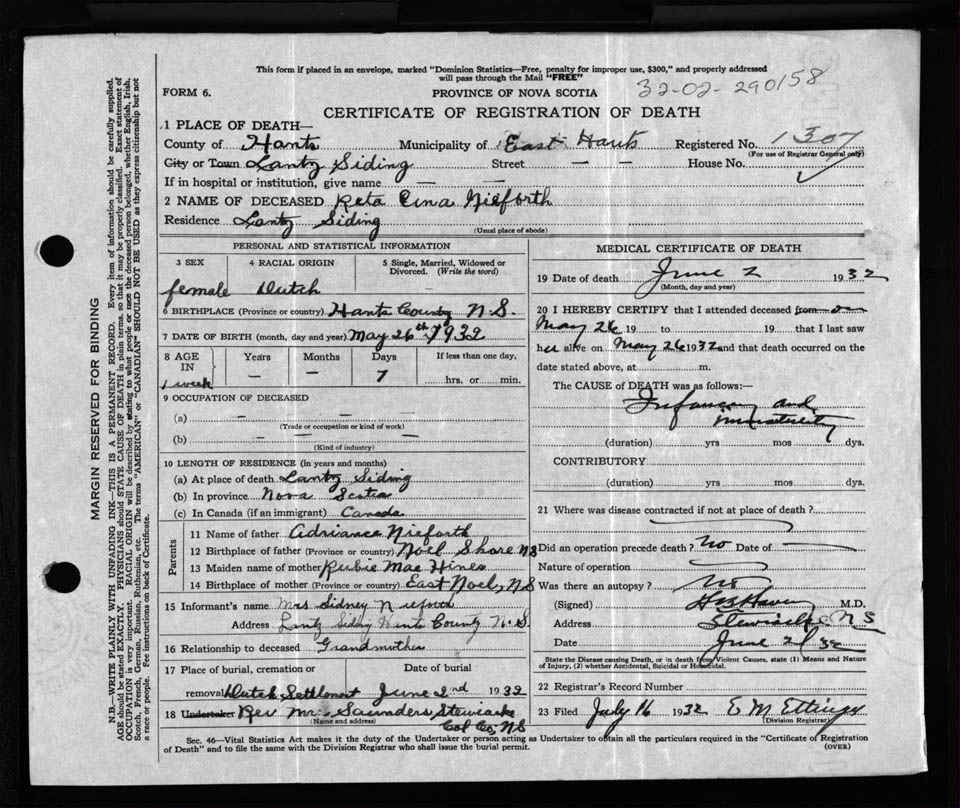 This form if placed in an envelope, marked "Dominion Statistics—Free, penalty for improper use, $300," and properly addressed
will pass through the Mail "FREE"
FORM 6.
PROVINCE OF NOVA SCOTIA
32-02-290158
CERTIFICATE OF REGISTRATION OF DEATH
1 PLACE OF DEATH—
County of Hants Municipality of East Hants Registered No. 1307
(For use of Registrar General only)
City or Town Lantz Siding Street — — House No.
If in hospital or institution, give name — —
2 NAME OF DECEASED Reta Nieforth
Residence Lantz Siding
(Usual place of abode)
PERSONAL AND STATISTICAL INFORMATION
3 SEX 4 RACIAL ORIGIN 5 Single, Married, Widowed or
Divorced. (Write the word)
female Dutch —
6 BIRTHPLACE (Province or country) Hants County N S.
7 DATE OF BIRTH (month, day and year) May 26th 1932
8 AGE IN Years Months Days If less than one day,
1 week — — 7 hrs. or min.
9 OCCUPATION OF DECEASED
(a) — —
(Trade or occupation or kind of work)
(b) — — —
(Kind of industry)
10 LENGTH OF RESIDENCE (in years and months)
(a) At place of death Lantz Siding
(b) In province Nova Scotia
(c) In Canada (if an immigrant) Canada
Parents
11 Name of father Adriance Nieforth
12 Birthplace of father (Province or country) Noel Shore NS
13 Maiden name of mother Rubie Mae Hines
14 Birthplace of mother (Province or country) East Noel, NS
15 Informant's name Mrs Sidney Nieforth
Address Lantz Siding Hants County N. S.
16 Relationship to deceased Grandmother
17 Place of burial, cremation or Date of burial
removal Dutch Settlement June 2nd 1932
18 Undertaker Rev Mr. Saunders, Stewiacke
(Name and address)
Col Co, NS
MEDICAL CERTIFICATE OF DEATH
19 Date of death June 2 1932
(Month, day and year)
20 I HEREBY CERTIFY that I attended deceased from on
May 26 19 to 19 that I last saw
her alive on May 26 1932 and that death occurred on the
date stated above, at m.
The CAUSE of DEATH was as follows:—
Infancy and
immaturity
(duration) yrs mos dys.
CONTRIBUTORY
(duration) yrs mos dys.
21 Where was disease contracted if not at place of death?
Did an operation precede death? No Date of —
Nature of operation
Was there an autopsy? No
(Signed) M.D.
Address Stewiacke N S
Date June 2/32
State the Disease causing Death, or in death from Violent Causes, state (1) Means and Nature
of Injury, (2) whether Accidental, Suicidal or Homicidal.
22 Registrar's Record Number
23 Filed July 16 1932 E M Ettinger
(Division Registrar)
Sec. 46—Vital Statistics Act makes it the duty of the Undertaker or person acting as Undertaker to obtain all the particulars required in the "Certificate of Registration
of Death" and to file the same with the Division Registrar who shall issue the burial permit.
(OVER)
MARGIN RESERVED FOR BINDING
N.B.—WRITE PLAINLY WITH UNFADING INK—THIS IS A PERMANENT RECORD. Every item of information should be carefully supplied.
AGE should be stated EXACTLY. PHYSICIANS should STATE CAUSE OF DEATH in plain terms, so that it may be properly classified. Exact statement of
OCCUPATION is very important. RACIAL ORIGIN will be described by stating to what people or race the deceased person belonged, whether English, Irish,
Scotch, French, German, Russian, Ruthenian, etc. The terms "AMERICAN" or "CANADIAN" SHOULD NOT BE USED as they express citizenship but not
a race or people. See instructions on back of Certificate.